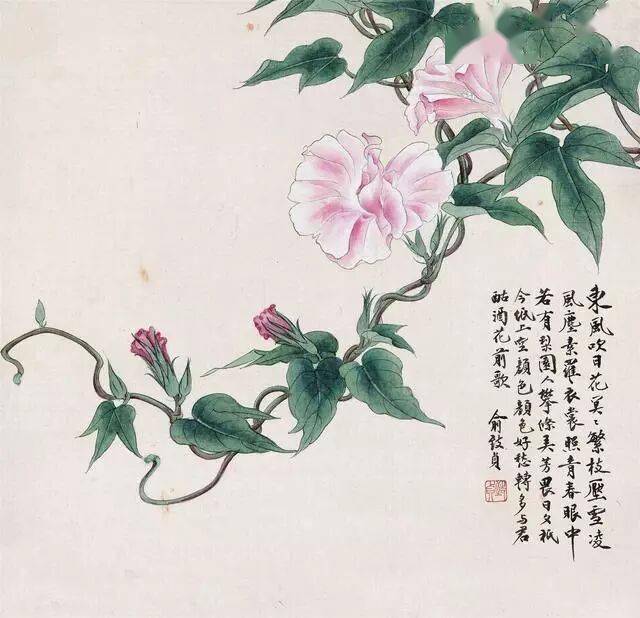 東風吹日花冥〻繁枝壓雪凌
風塵素羅衣裳照青春眼中
若有梨園人攀條弄芳畏日夕祇
今紙上空顏色顏色好愁轉多与君
酤酒花前歌
俞致貞